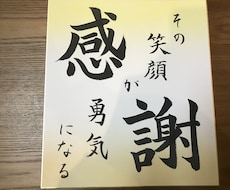 感謝
その
笑顔
が
勇気
になる